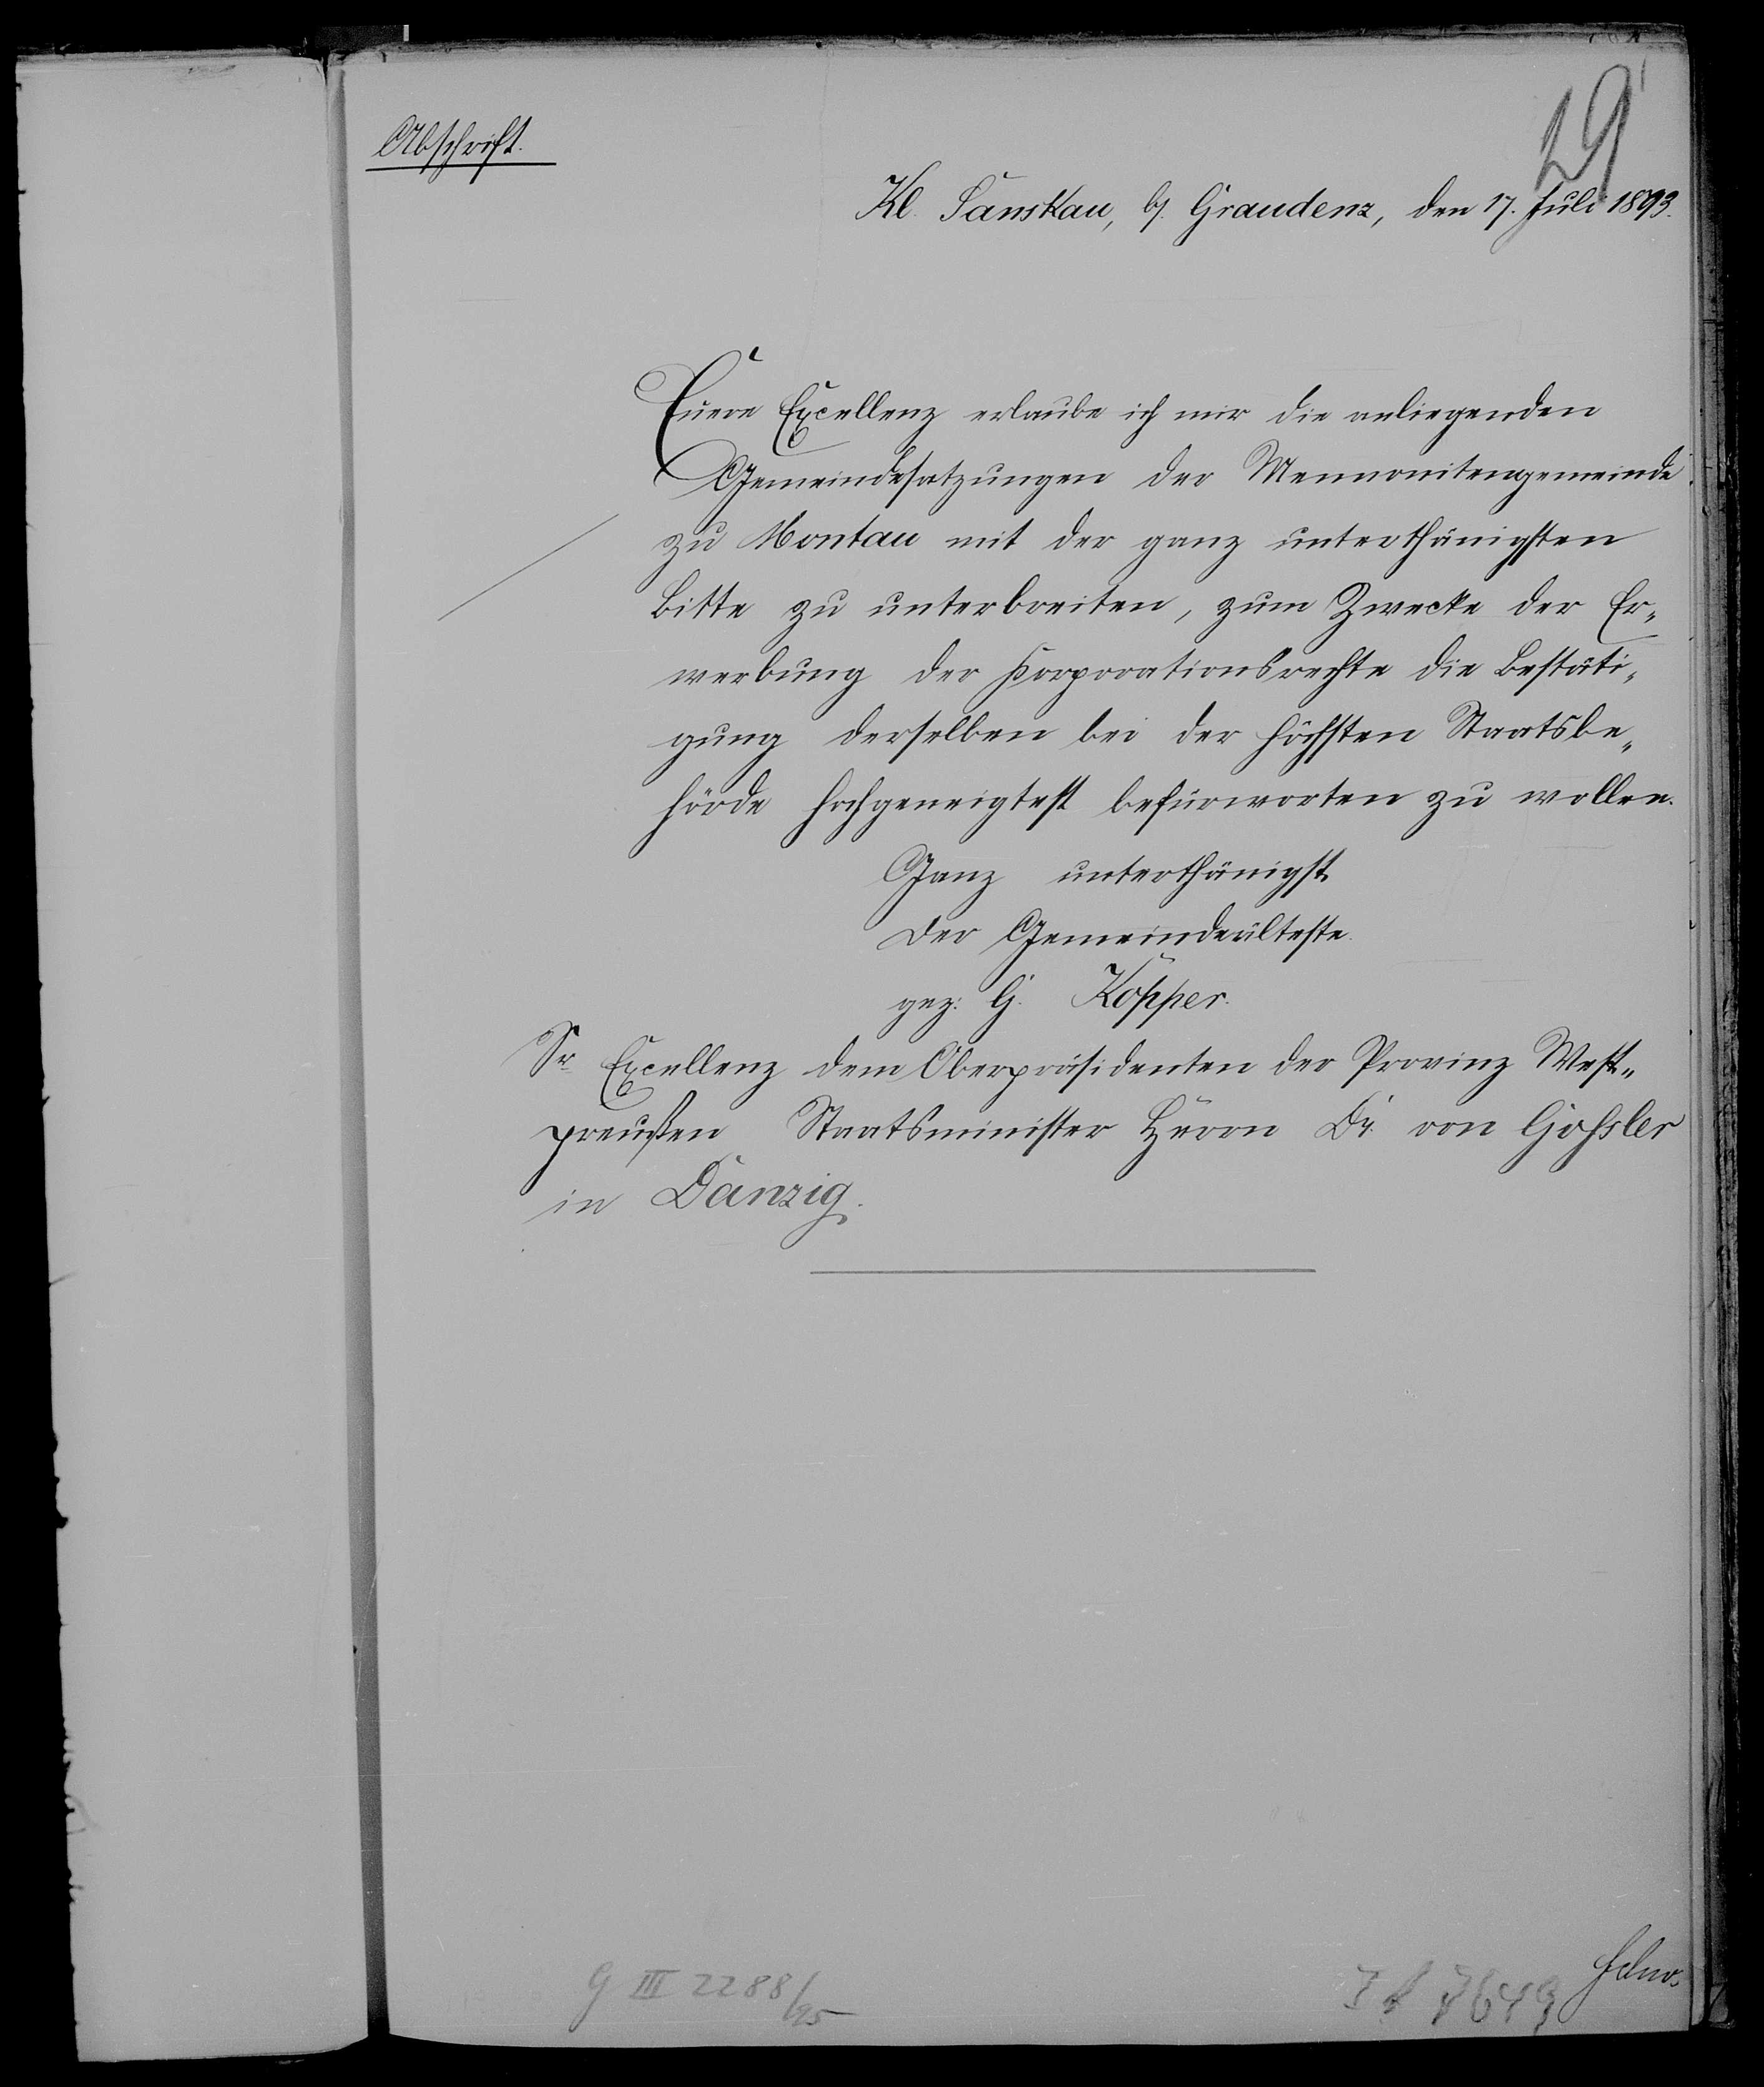 29
Abschrift.
Kl. Sanskau, b/. Graudenz, den 17. Juli 1893.
Euere Excellenz erlaube ich mir die anliegenden
Gemeindesatzungen der Mennonitengemeinde
zu Montau mit der ganz unterthänigsten
Bitte zu unterbreiten, zum Zwecke der Er-
werbung der Korporationsrechte die Bestäti-
gung derselben bei der höchsten Staatsbe-
hörde hochgeneigtest befürworten zu wollen.
Ganz unterthänigst
Der Gemeindeälteste.
gez: G. Kopper.
Sr Excellenz dem Oberpräsidenten der Provinz West-
preußen Staatsminister Herrn Dr. von Goßler
in Danzig.
G III 2288/95
7649